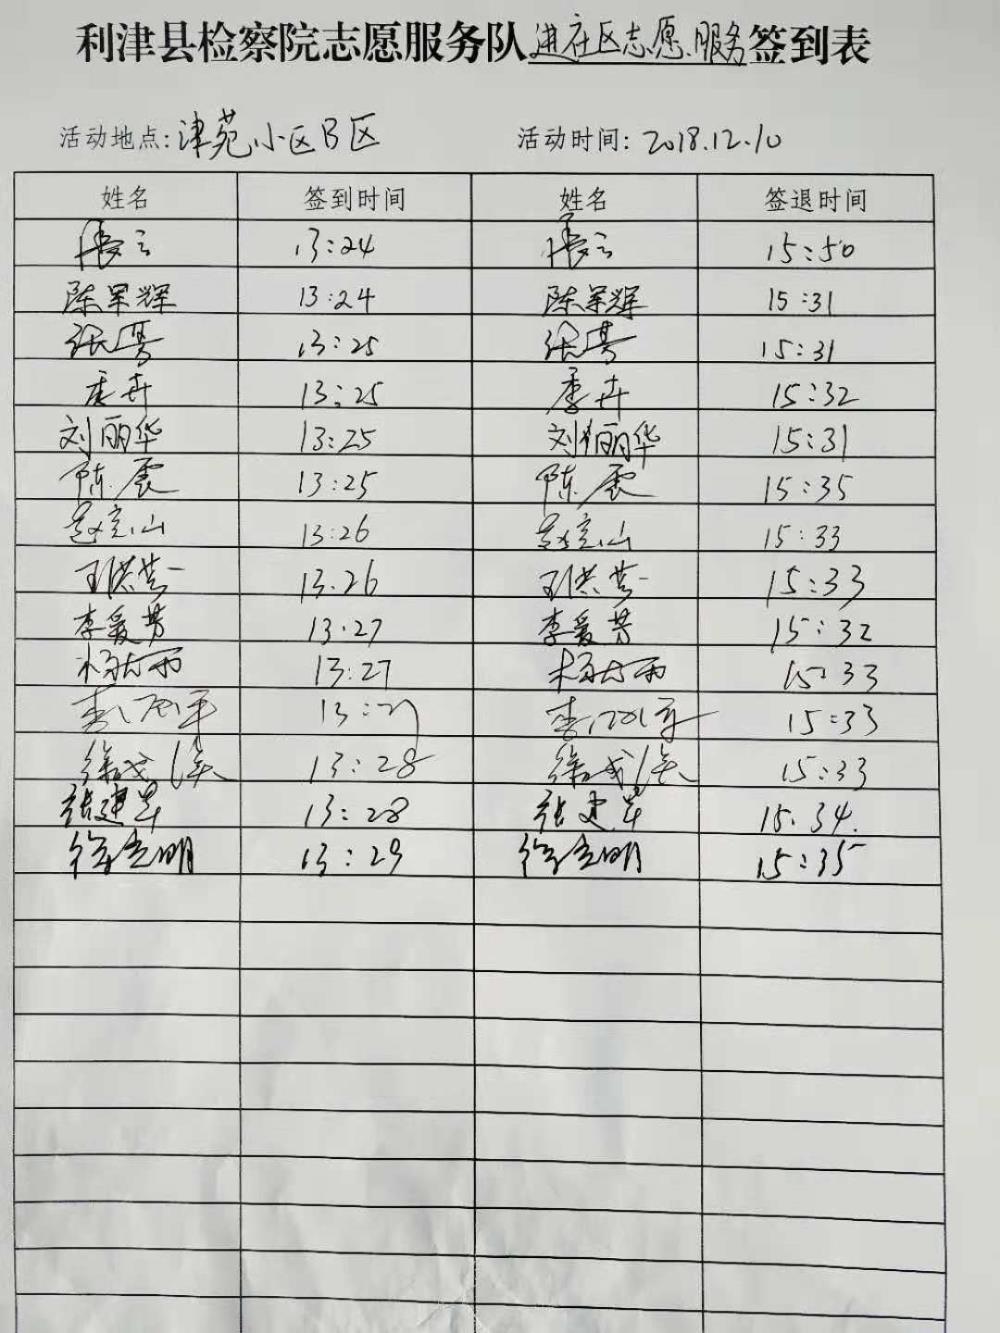 利津县检察院志愿服务队进社区志愿服务签到表
活动地点:津苑小区B区 活动时间:2018.12.10
姓名 签到时间 姓名 签退时间
13:24 15:50
陈军辉 13:24 陈军辉 15:31
13:25 15:31
13:25 李卉 15:32
刘丽华 13:25 刘丽华 15:31
陈震 13:25 陈震 15:35
13:26 15:33
王洪英 13.26 王洪英 15:33
李爱芳 13.27 李爱芳 15:32
杨大雨 13:27 杨大雨 15:33
13:27 15:33
13:28 15:33
张建军 13:28 张建军 15.34.
13:29 15:35